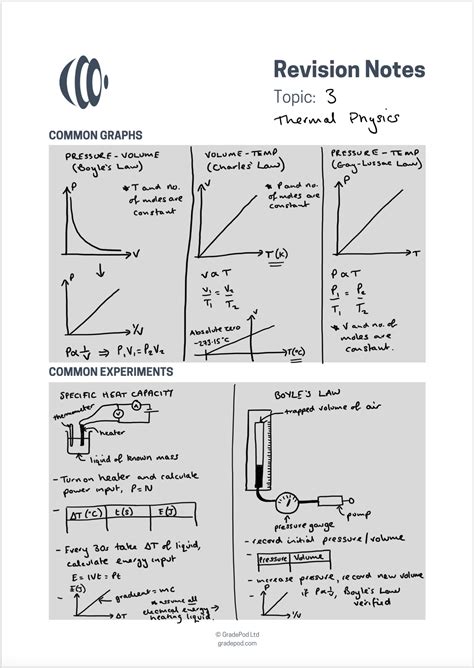 Revision Notes
Topic: 3
Thermal Physics
COMMON GRAPHS
PRESSURE - VOLUME
(Boyle's Law)
P
* T and no.
of moles are
constant
V
P
1/V
Pα1/V ⇒ P₁V₁=P₂V₂
VOLUME-TEMP
(Charles' Law)
V
* P and no.
of moles are
constant
T(K)
V α T
V₁/T₁ = V₂/T₂
V
Absolute zero
-273.15°C
T(°C)
PRESSURE - TEMP
(Gay-Lussac Law)
P
T
P α T
P₁/T₁ = P₂/T₂
* V and no. of
moles are
constant.
COMMON EXPERIMENTS
SPECIFIC HEAT CAPACITY
thermometer
A
V
heater
liquid of known mass
- Turn on heater and calculate
power input, P=IV
ΔT (°C) t(s) E(J)
- Every 30s take ΔT of liquid,
calculate energy input
E = IVt = Pt
E(J)
gradient = mc
* assume all
electrical energy →
heating liquid.
ΔT
BOYLE'S LAW
trapped volume of air
pump
pressure gauge
- record initial pressure/volume
Pressure Volume
- increase pressure, record new volume
P
1/V
if Pα1/V, Boyle's Law
verified
© GradePod Ltd
gradepod.com